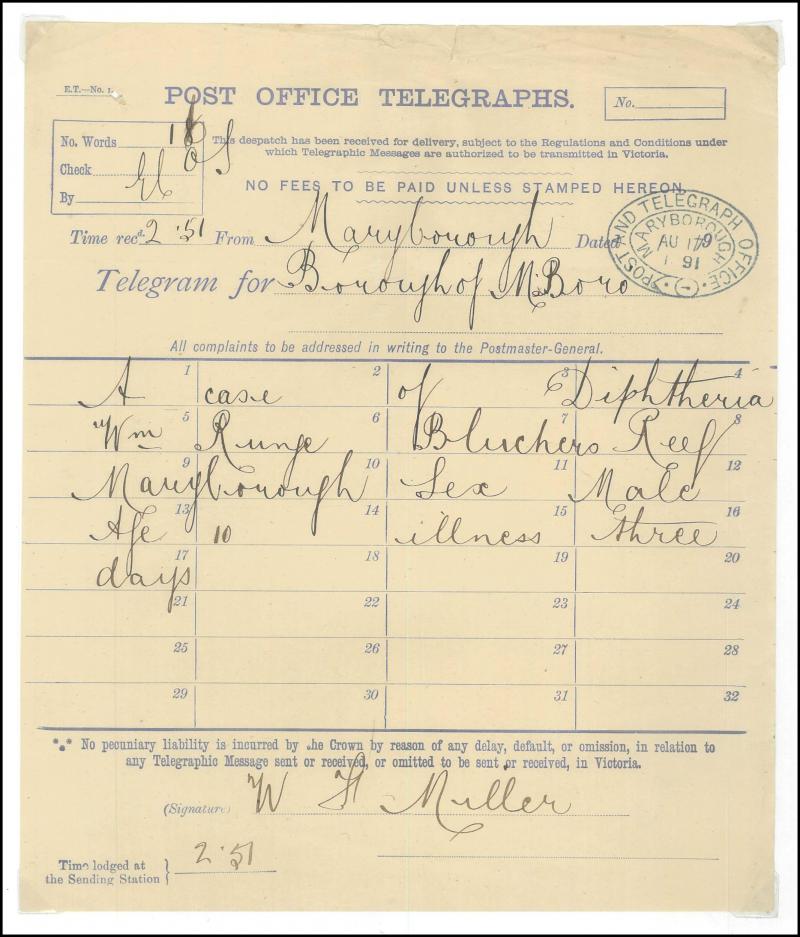 E.T.—No. 1.
POST OFFICE TELEGRAPHS.
No.
No. Words 16
Check
By
This despatch has been received for delivery, subject to the Regulations and Conditions under
which Telegraphic Messages are authorized to be transmitted in Victoria.
NO FEES TO BE PAID UNLESS STAMPED HEREON.
Time recd. 2.51 From Maryborough Dated
POST AND TELEGRAPH OFFICE
MARYBOROUGH
AU
91
Telegram for Borough of MBoro
All complaints to be addressed in writing to the Postmaster-General.
1 2 3 4
A case of Diphtheria
5 6 7 8
Wm Runge Bluchers Reef
9 10 11 12
Maryborough Sex Male
13 14 15 16
Age 10 illness three
17 18 19 20
days
21 22 23 24
25 26 27 28
29 30 31 32
No pecuniary liability is incurred by the Crown by reason of any delay, default, or omission, in relation to
any Telegraphic Message sent or received, or omitted to be sent or received, in Victoria.
(Signature) W H Miller
Time lodged at
the Sending Station } 2.51